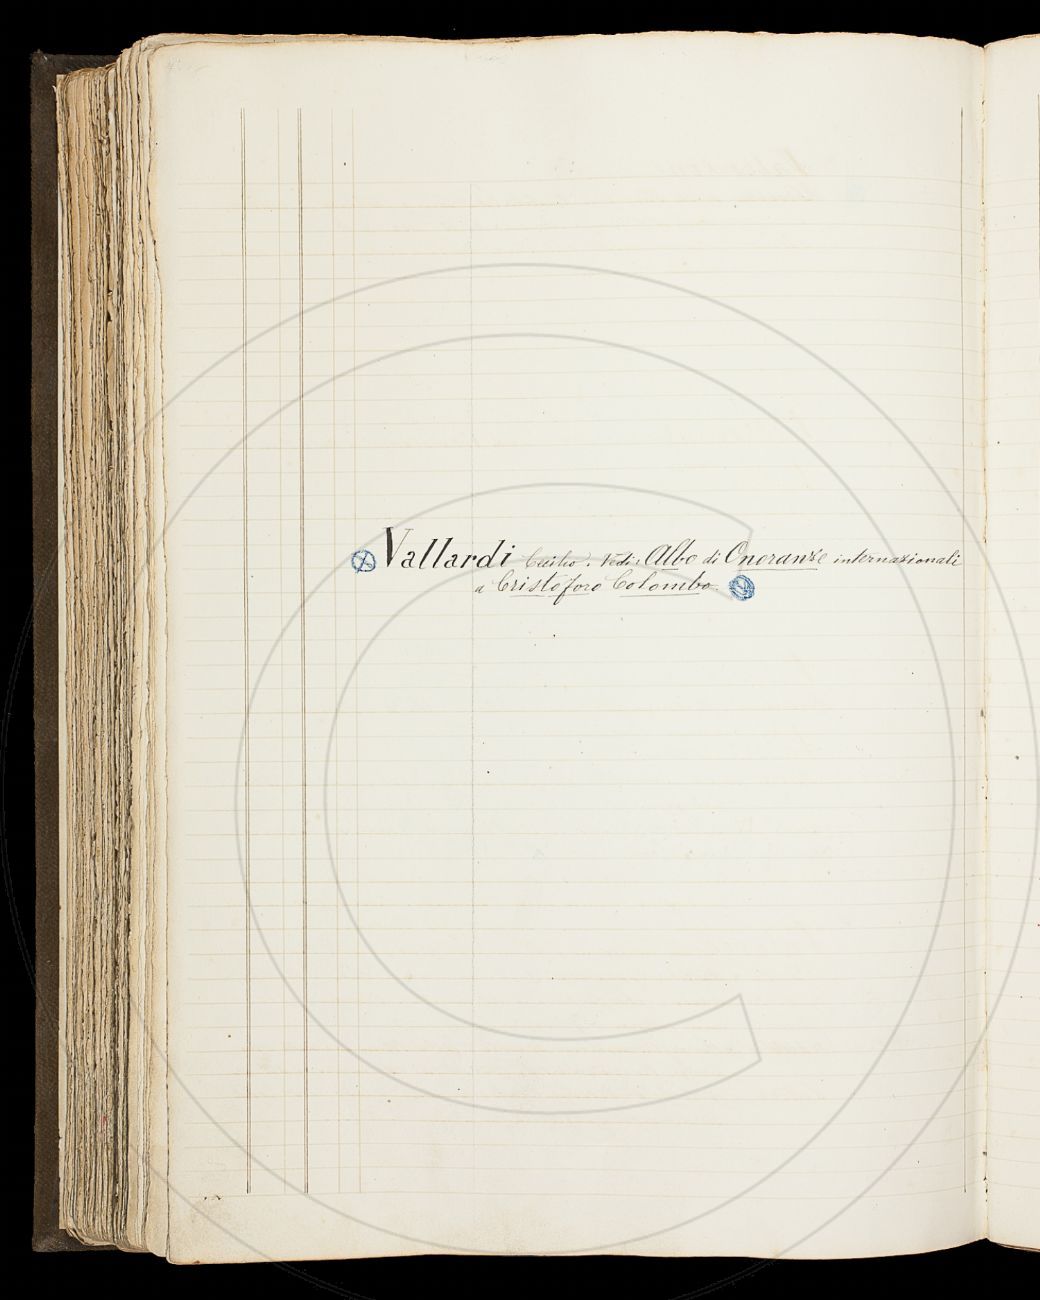 Vallardi Cecilio. Vedi: Albo di Onoranze internazionali
a Cristoforo Colombo.